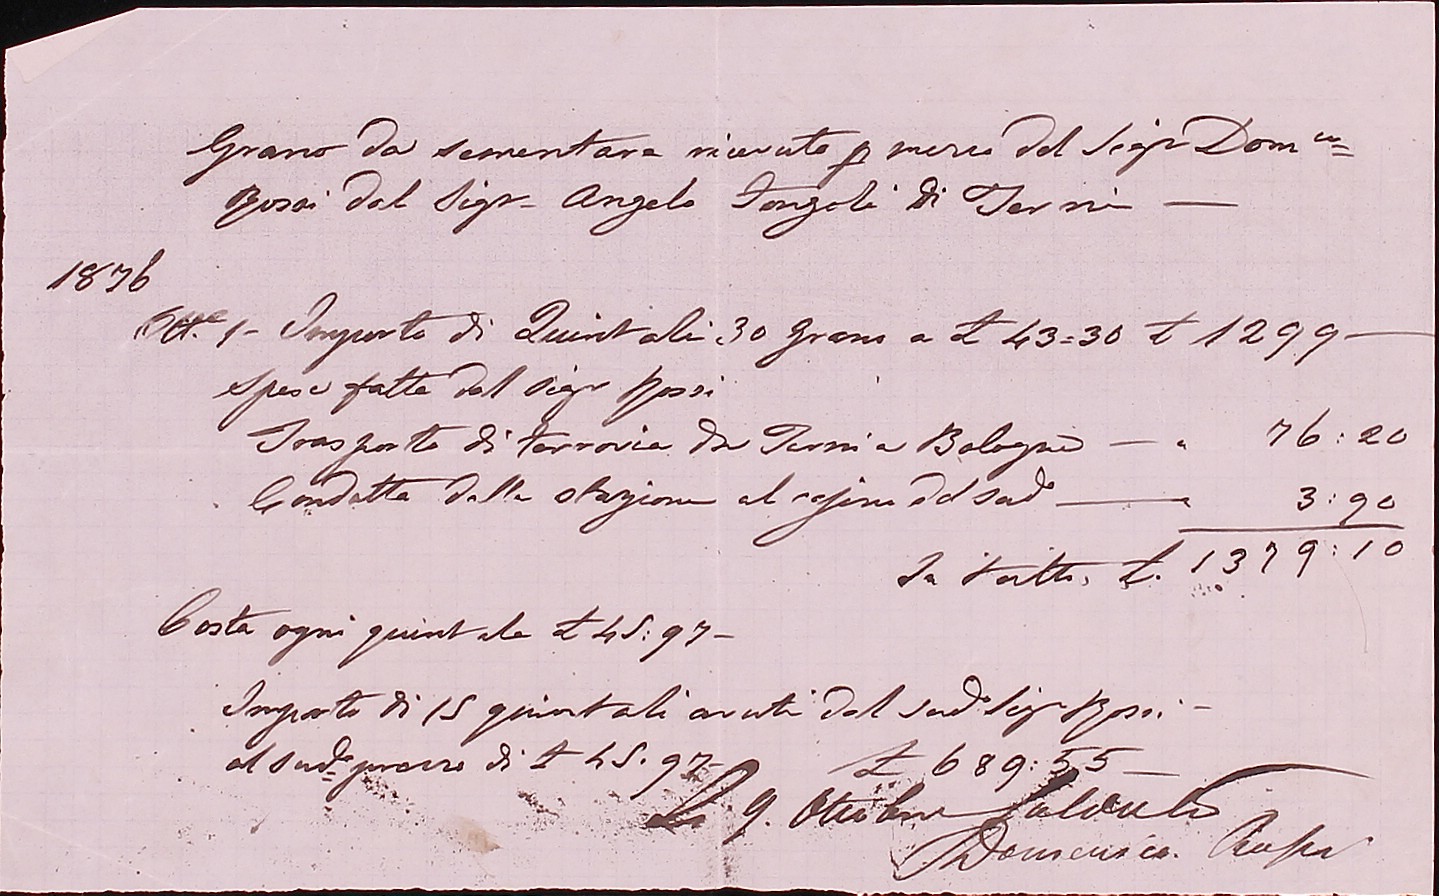 Grano da sementare ricevuto p mezo del Sigr Dom.co
Rossi dal Sigr Angelo Fongoli di Terni —
1876
Ott.e 1- Importo di Quintali 30 Grano a £ 43=30 £ 1299 —
spese fatte dal Sigr Rossi
Trasporto di ferrovia da Terni a Bologna — " 76:20
Condotta dalla stazione al del sud.o — " 3:90
In tutto, £. 1379:10
Costa ogni quintale £ 45:97 —
Importo di 15 quintali avuti dal sud.o Sigr Rossi -
al sud.o prezzo di £ 45.97- £ 689:55 —
Li 9. Ottobre Saldato
Domenico Rossi